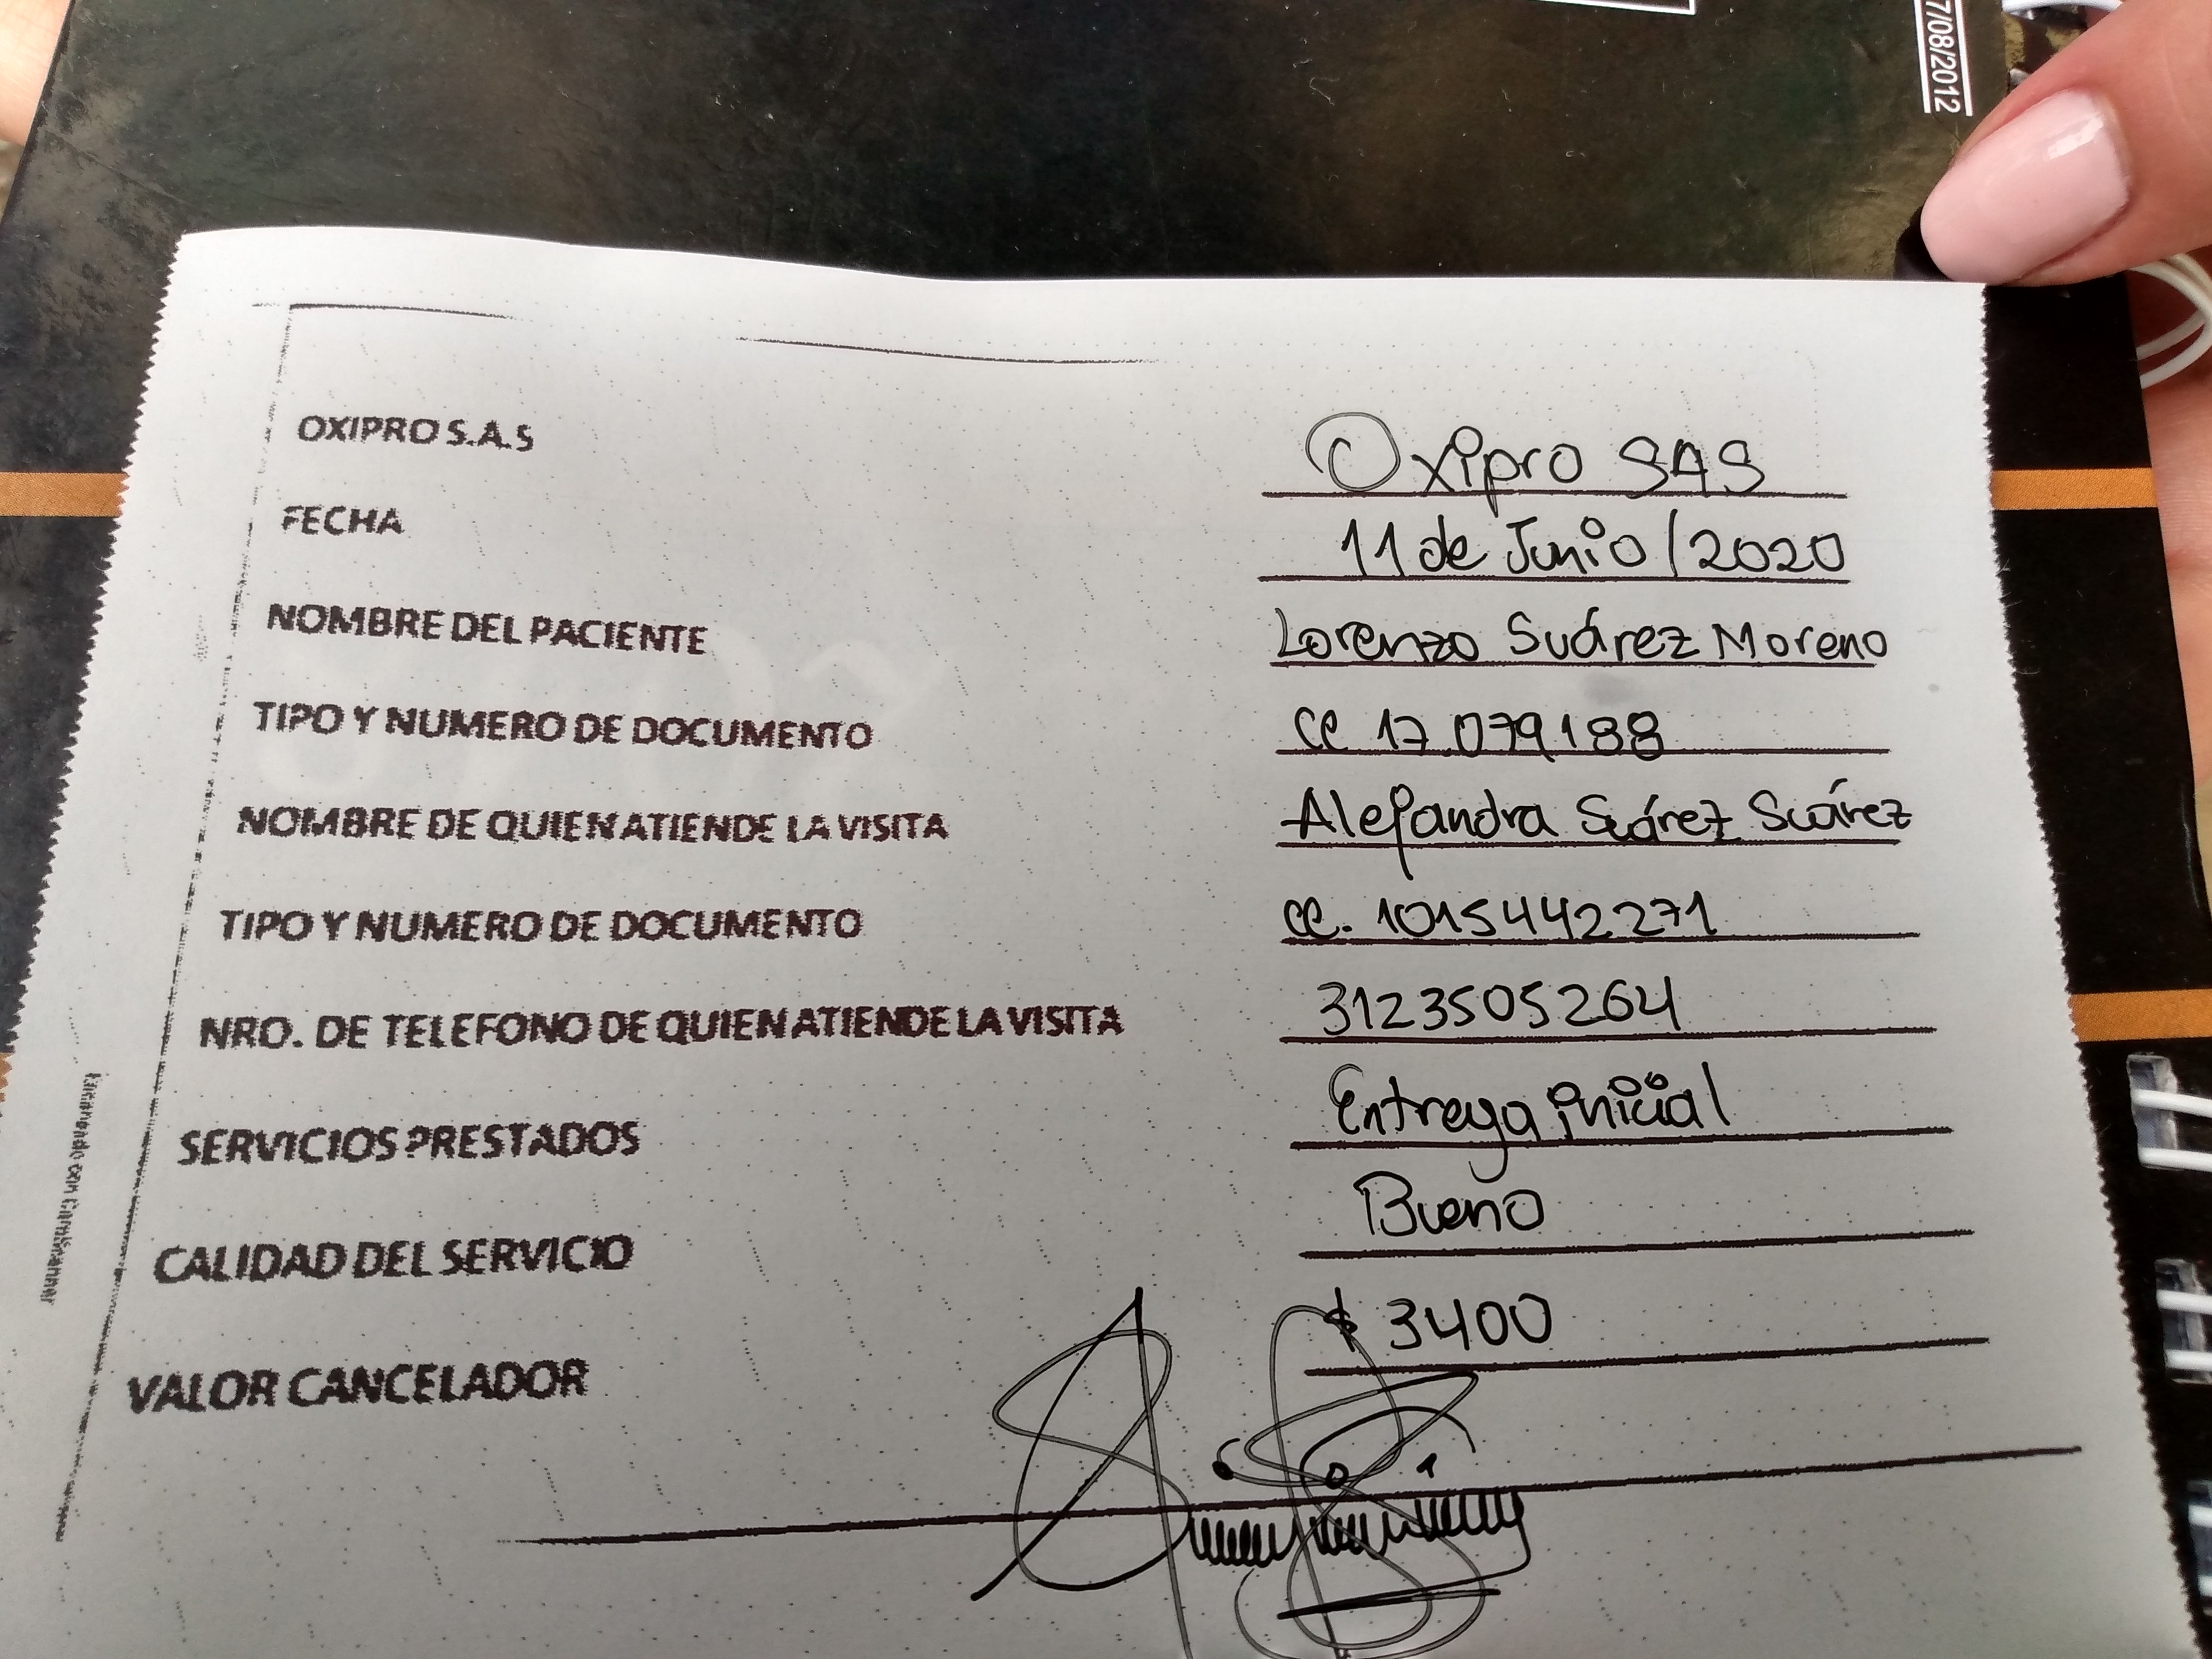 7/08/2012
OXIPRO S.A.S Oxipro SAS
FECHA 11 de Junio/2020
NOMBRE DEL PACIENTE Lorenzo Suárez Moreno
TIPO Y NUMERO DE DOCUMENTO CC 17.079188
NOMBRE DE QUIEN ATIENDE LA VISITA Alejandra Suárez Suárez
TIPO Y NUMERO DE DOCUMENTO CC. 1015442271
NRO. DE TELEFONO DE QUIEN ATIENDE LA VISITA 3123505264
SERVICIOS PRESTADOS Entrega inicial
CALIDAD DEL SERVICIO Bueno
VALOR CANCELADOR $ 3400